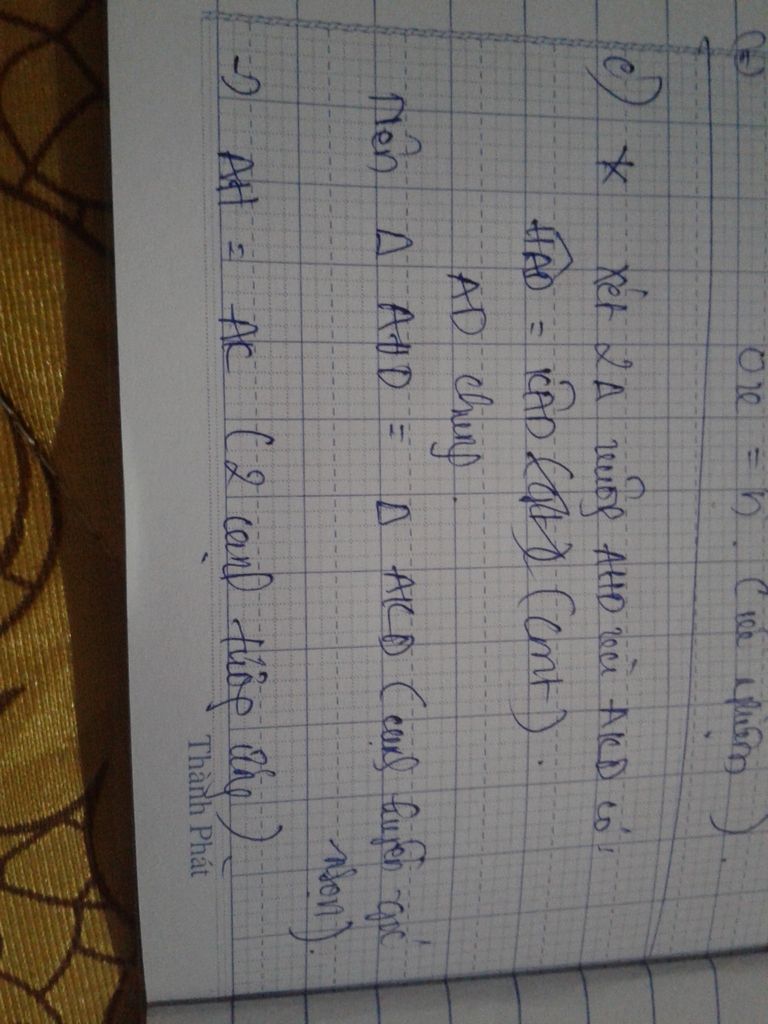 (=) 0x = 5. (vô nghiệm).
c) * Xét 2Δ vuông AHD và AKD có:
HAD = KAD (cmt).
AD chung.
Nên Δ AHD = Δ AKD (cạnh huyền - góc
nhọn).
=> AH = AK (2 cạnh tương ứng)
Thành Phát